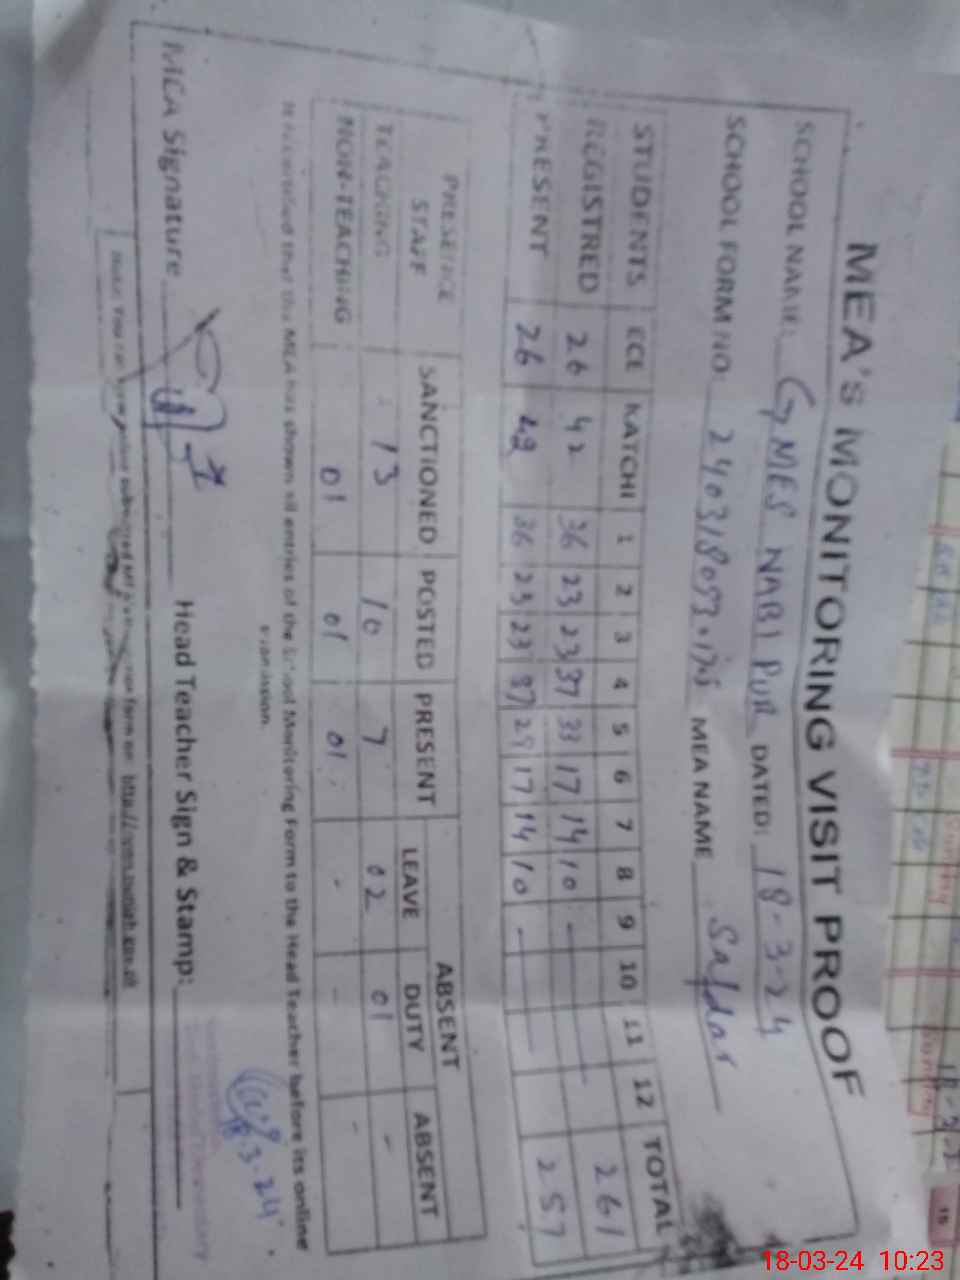 MEA'S MONITORING VISIT PROOF
SCHOOL NAME: GMES NABI PUR DATED: 18-3-24
SCHOOL FORM NO: MEA NAME Safdar
STUDENTS ECE KATCHI 1 2 3 4 5 6 7 8 9 10 11 12 TOTAL
REGISTRED 26 42 36 23 23 37 33 17 14 10 - 261
PRESENT 26 42 36 23 23 37 29 17 14 10 - 257
PRESENCE STAFF SANCTIONED POSTED PRESENT ABSENT
LEAVE DUTY ABSENT
TEACHING 13 10 7 02 01 -
NON-TEACHING 01 01 01 - - -
It is certified that the MEA has shown all entries of the School Monitoring Form to the Head Teacher before its online
MEA Signature Head Teacher Sign & Stamp:
18-03-24 10:23